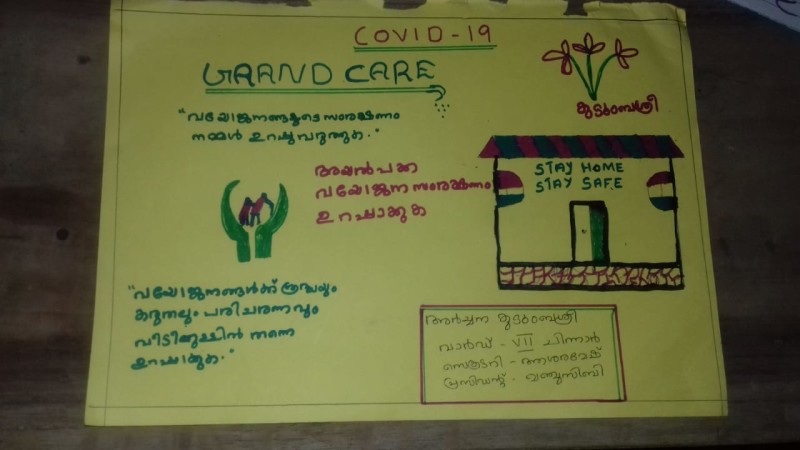 COVID-19
GRAND CARE
കുടുംബശ്രീ
"വയോജനങ്ങളുടെ സംരക്ഷണം
നമ്മൾ ഉറപ്പുവരുത്തുക."
STAY HOME
STAY SAFE
അയൽപക്ക
വയോജന സംരക്ഷണം
ഉറപ്പാക്കുക
"വയോജനങ്ങൾക്ക് ശ്രദ്ധയും
കരുതലും പരിചരണവും
വീടിനുള്ളിൽ തന്നെ
ഉറപ്പാക്കുക."
അർച്ചന കുടുംബശ്രീ
വാർഡ് - VII ചിന്നാർ
സെക്രട്ടറി -
പ്രസിഡന്റ് -